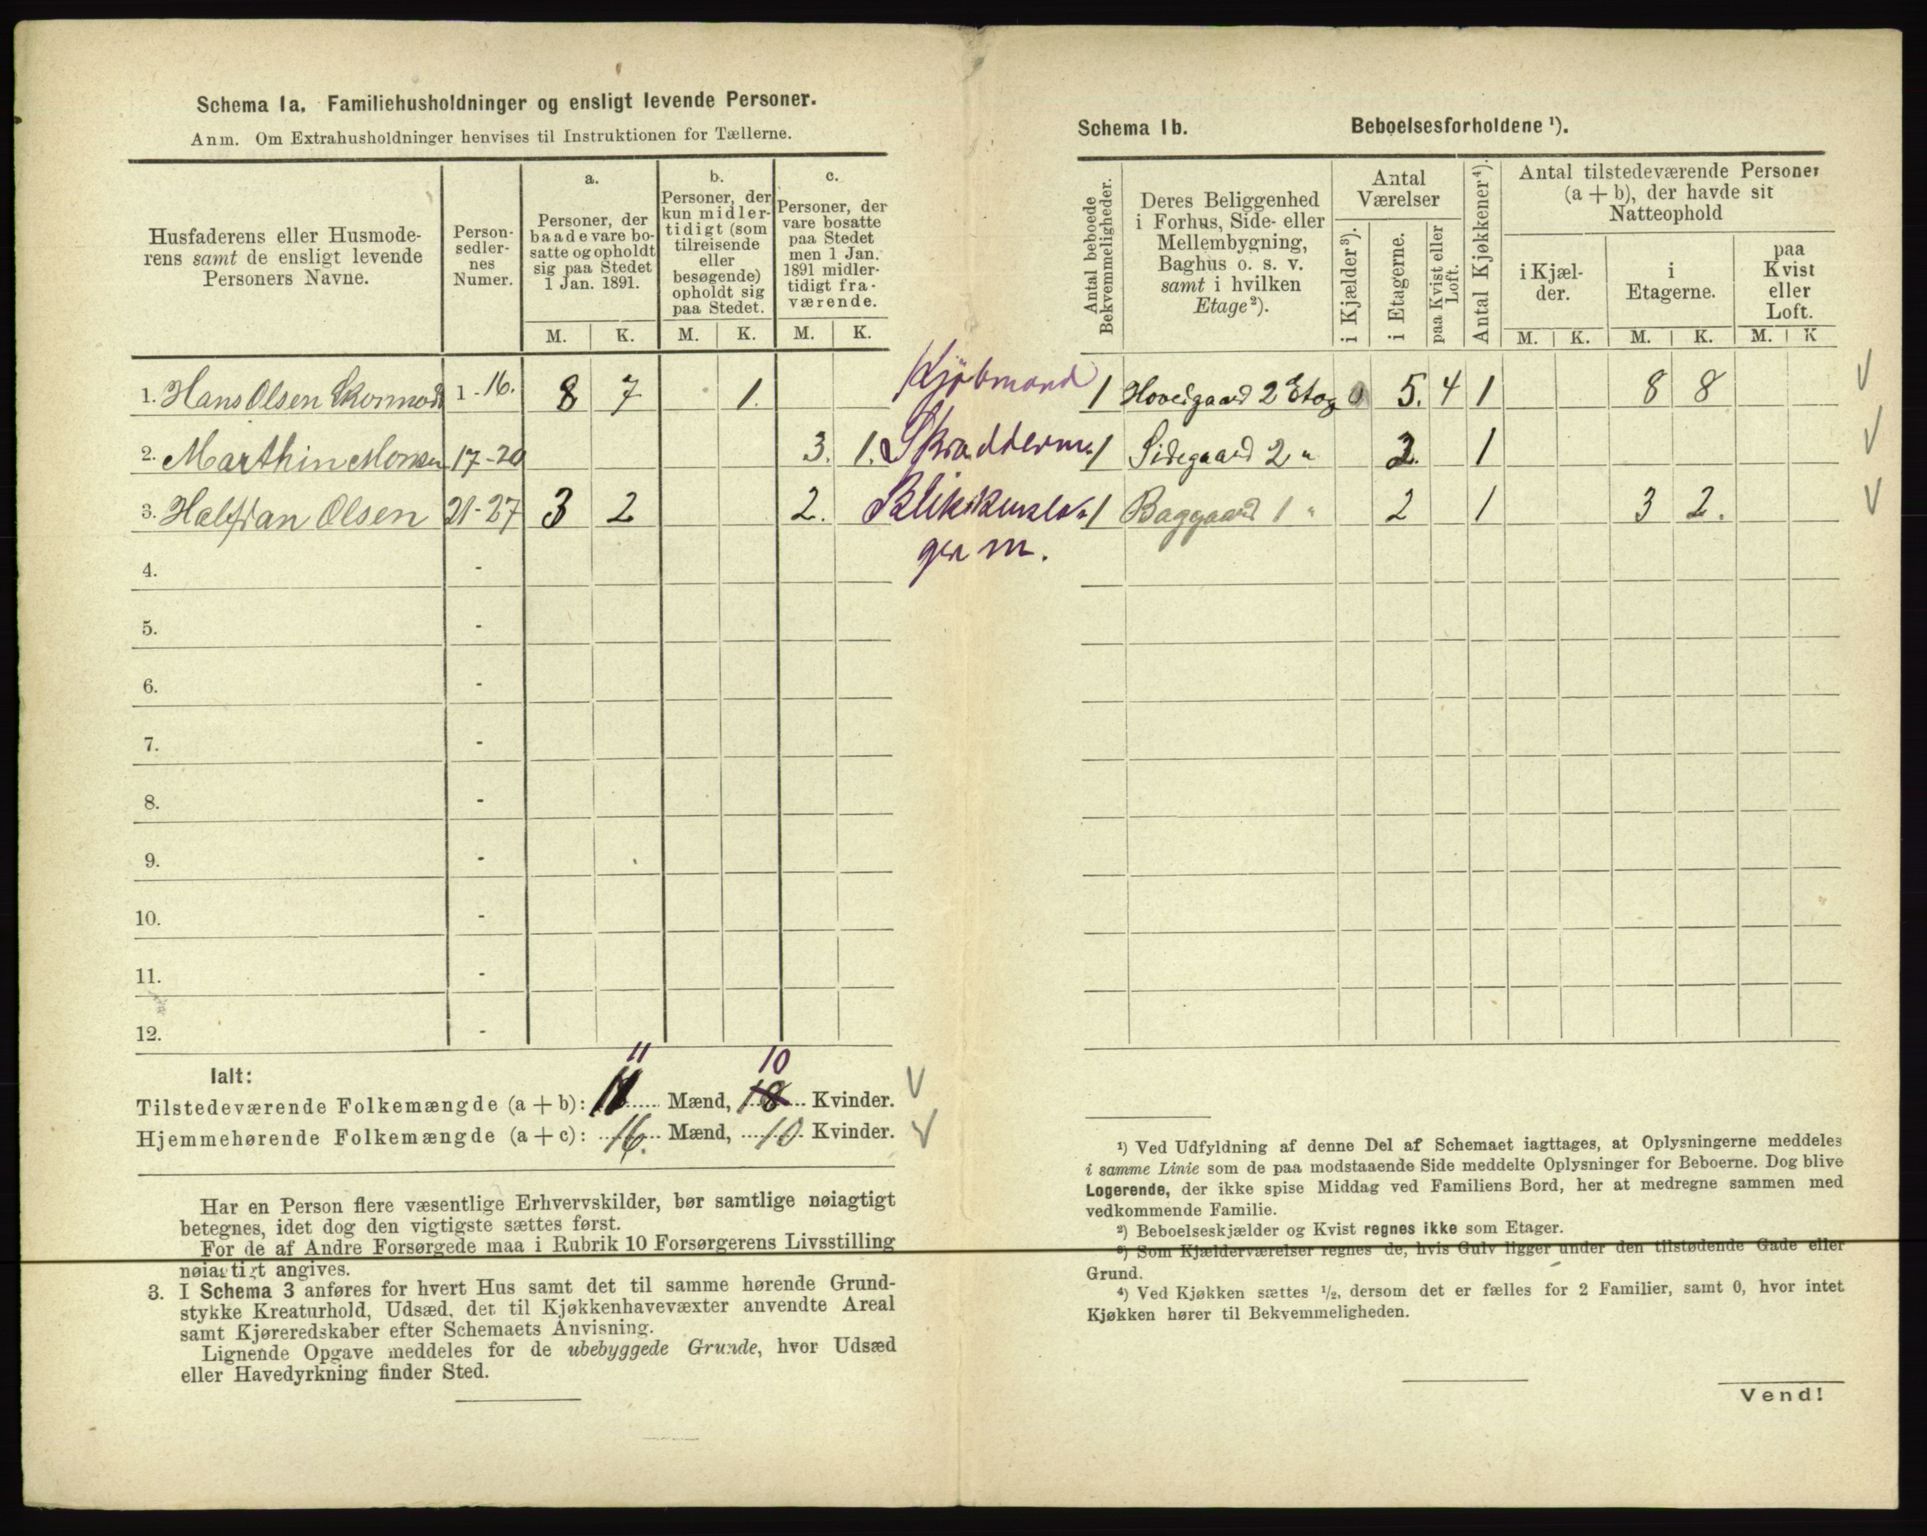 Schema 1a. Familiehusholdninger og ensligt levende Personer.
Anm. Om Extrahusholdninger henvises til Instruktionen for Tællerne.
Husfaderens eller Husmode-
rens samt de ensligt levende
Personers Navne.
Person-
sedler-
nes
Numer.
a.
Personer, der
baade vare bo-
satte og opholdt
sig paa Stedet
1 Jan. 1891.
b.
Personer, der
kun midler-
tidigt (som
tilreisende
eller
besøgende)
opholdt sig
paa Stedet.
c.
Personer, der
vare bosatte
paa Stedet
men 1 Jan.
1891 midler-
tidigt fra-
værende.
M. K. M. K. M. K.
1. Hans Olsen 1 - 16. 8 7 1. Kjøbmand
2. Marthin Monsen 17 - 20 3. 1. Skrædderm.
3. Halfdan Olsen 21 - 27 3 2 2. Blikkensla-
ger m.
4. -
5. -
6. -
7. -
8. -
9. -
10. -
11. -
12. -
11 10
Ialt:
Tilstedeværende Folkemængde (a + b): 11 Mænd, 18 Kvinder.
Hjemmehørende Folkemængde (a + c): 16. Mænd, 10. Kvinder.
Har en Person flere væsentlige Erhvervskilder, bør samtlige nøiagtigt
betegnes, idet dog den vigtigste sættes først.
For de af Andre Forsørgede maa i Rubrik 10 Forsørgerens Livsstilling
nøiagtigt angives.
3. I Schema 3 anføres for hvert Hus samt det til samme hørende Grund-
stykke Kreaturhold, Udsæd, det til Kjøkkenhavevæxter anvendte Areal
samt Kjøreredskaber efter Schemaets Anvisning.
Lignende Opgave meddeles for de ubebyggede Grunde, hvor Udsæd
eller Havedyrkning finder Sted.
Schema 1b. Beboelsesforholdene ¹).
Antal beboede
Bekvemmeligheder.
Deres Beliggenhed
i Forhus, Side- eller
Mellembygning,
Baghus o. s. v.
samt i hvilken
Etage²).
Antal
Værelser
i Kjælder³).
i Etagerne.
paa Kvist eller
Loft.
Antal Kjøkkener⁴).
Antal tilstedeværende Personer
(a + b), der havde sit
Natteophold
i Kjæl-
der.
i
Etagerne.
paa
Kvist
eller
Loft.
M. K. M. K. M. K
1 Hovedgaard 2 Etag 0 5. 4 1 8 8
1 Sidegaard 2 " 2. 1
1 Baggaard 1 " 2 1 3 2.
¹) Ved Udfyldning af denne Del af Schemaet iagttages, at Oplysningerne meddeles
i samme Linie som de paa modstaaende Side meddelte Oplysninger for Beboerne. Dog blive
Logerende, der ikke spise Middag ved Familiens Bord, her at medregne sammen med
vedkommende Familie.
²) Beboelseskjælder og Kvist regnes ikke som Etager.
³) Som Kjælderværelser regnes de, hvis Gulv ligger under den tilstødende Gade eller
Grund.
⁴) Ved Kjøkken sættes ½, dersom det er fælles for 2 Familier, samt 0, hvor intet
Kjøkken hører til Bekvemmeligheden.
Vend!